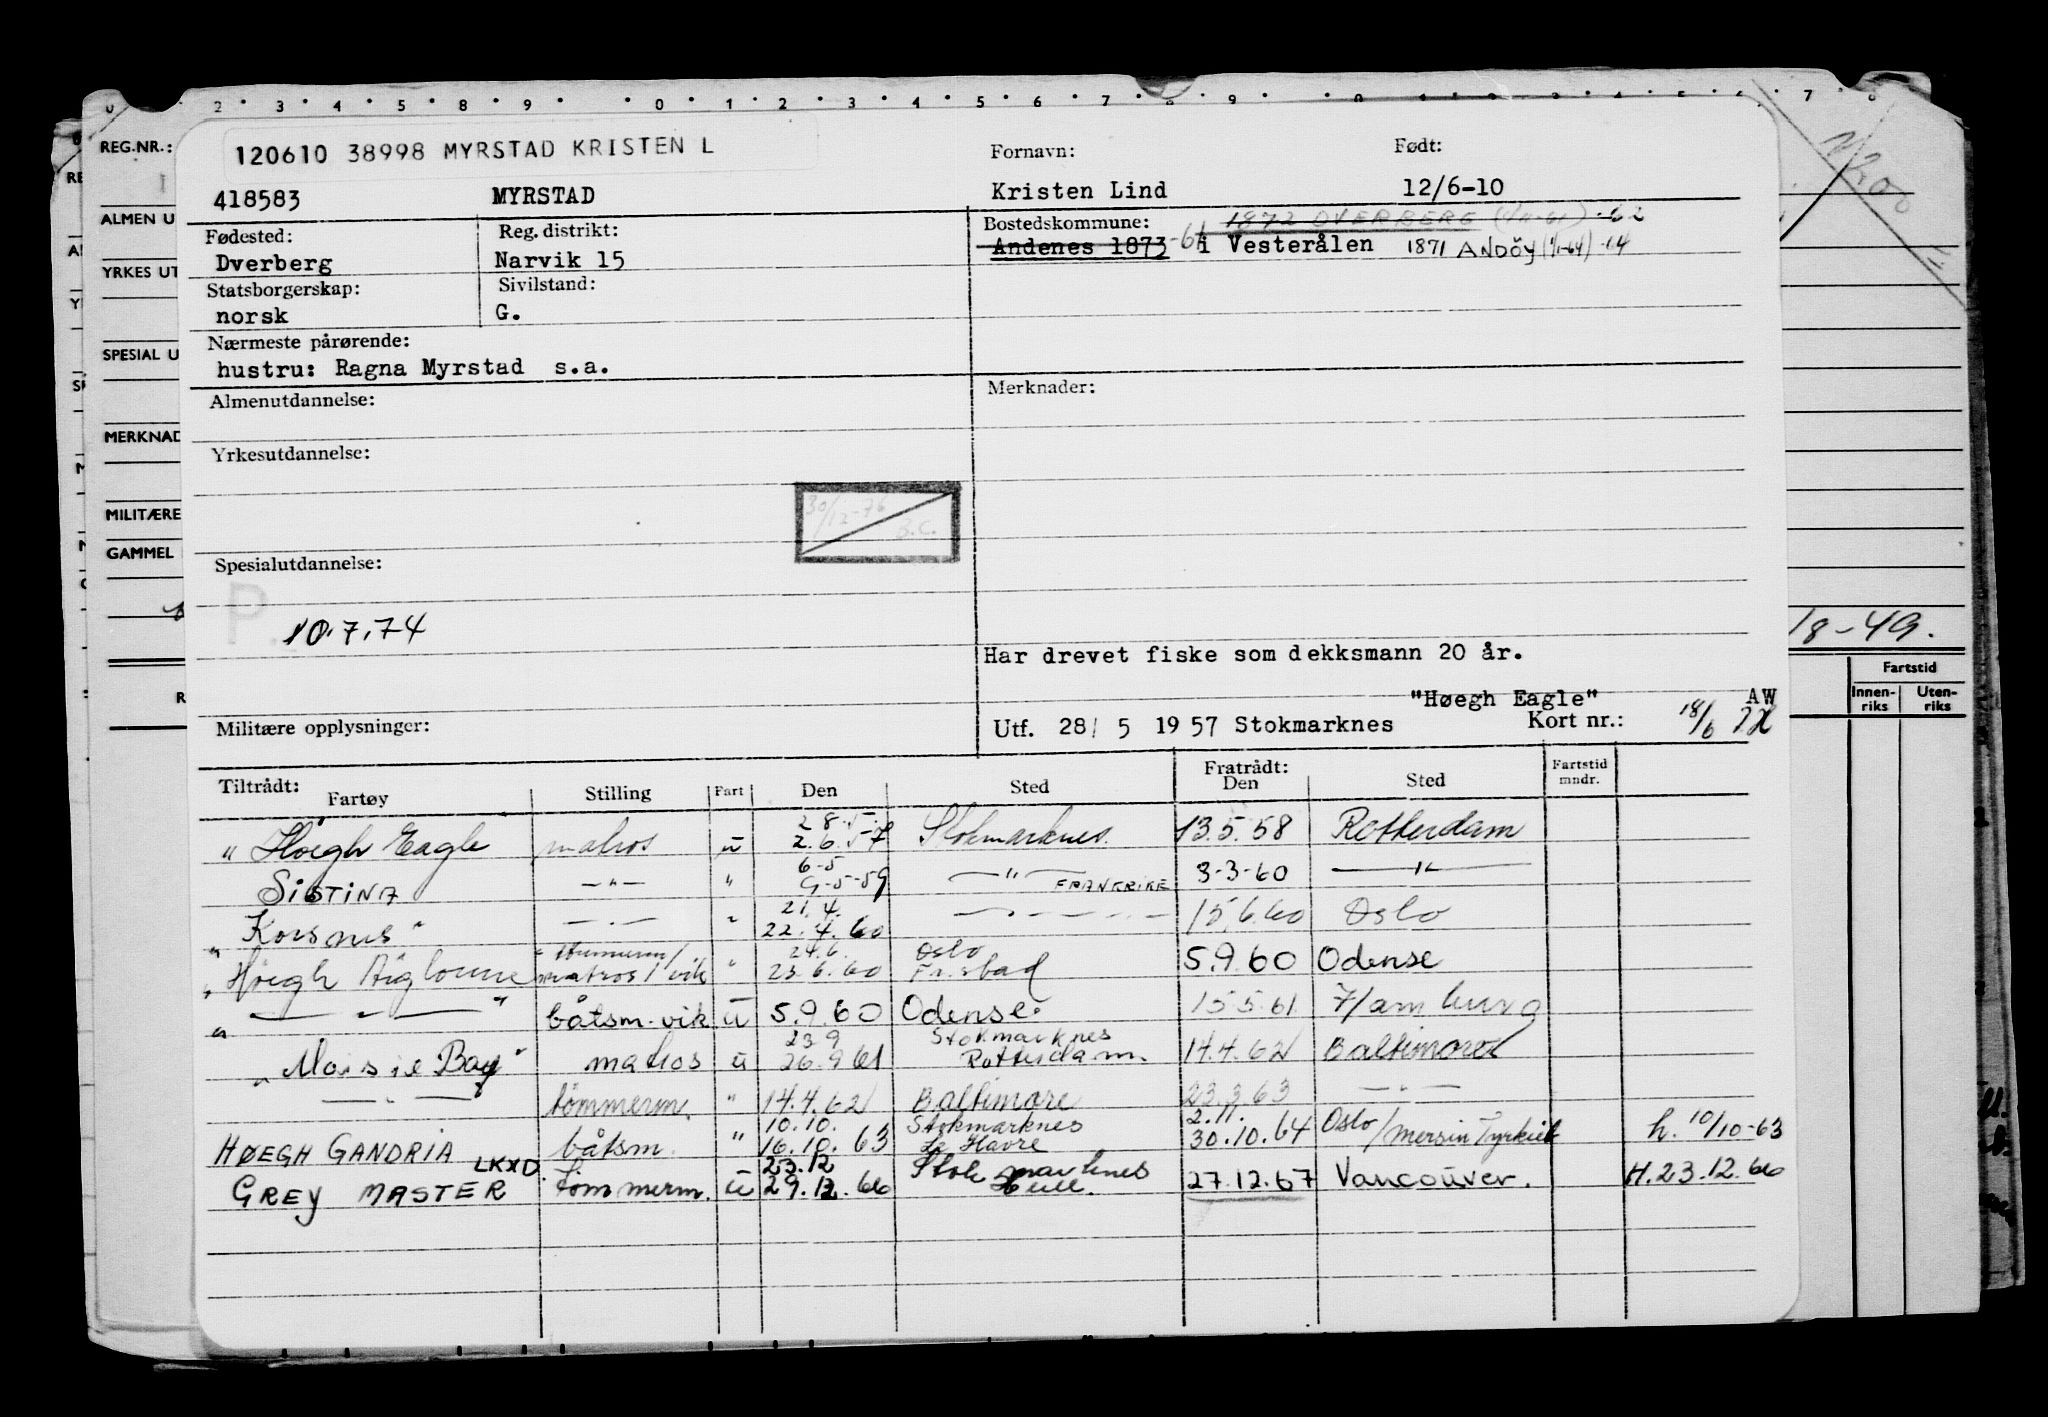 120610 38998 MYRSTAD KRISTEN L
Fornavn: Født:
418583 MYRSTAD Kristen Lind 12/6-10
Fødested: Reg. distrikt: Bostedskommune: 1872 DVERBERG
Dverberg Narvik 15 Andenes 1873 i Vesterålen 1871 ANDÖY (1/1-64)
Statsborgerskap: Sivilstand:
norsk G.
Nærmeste pårørende:
hustru: Ragna Myrstad s.a.
Almenutdannelse: Merknader:
Yrkesutdannelse:
30/12-76 B.C.
Spesialutdannelse:
P.
10.7.74
Har drevet fiske som dekksmann 20 år.
"Høegh Eagle" AW
Militære opplysninger: Utf. 28/ 5 1957 Stokmarknes Kort nr.: 18/6
Tiltrådt: Fratrådt: Fartstid mndr.
Fartøy Stilling Fart Den Sted Den Sted
28.5.
"Høegh Eagle matros u 2.6.57 Stokmarknes. 13.5.58 Rotterdam
6-5
SISTINA —"— " 9-5-59 —"— FRANKRIKE 3-3-60 —"—
21.4.
"Korsnes" —"— " 22.4.60 15.6.60 Oslo
24.6. Oslo
"Høegh Aiglonne matros/vik " 23.6.60 Fr.stad 5.9.60 Odense
" —"— " båtsm. vik u 5.9.60 Odense. 15.5.61 Hamburg
23.9 Stokmarknes
"Morsie Bay" matros u 26.9.61 Rotterdam. 14.4.62 Baltimore
—"— tömmerm. " 14.4.62 Baltimore 23.3.63 —"—
10.10. Stokmarknes 2.11.
HØEGH GANDRIA båtsm. " 16.10.63 Le Havre 30.10.64 Oslo/Mersin Tyrkiet h. 10/10-63
LKXD 23.12 Stokmarknes
GREY MASTER tømmerm. u 29.12.66 Hull. 27.12.67 Vancouver. H.23.12.66
REG.NR.:
ALMEN U
YRKES UT
SPESIAL U
MERKNAD
MILITÆRE
GAMMEL
18-49.
Fartstid
Innenriks Utenriks